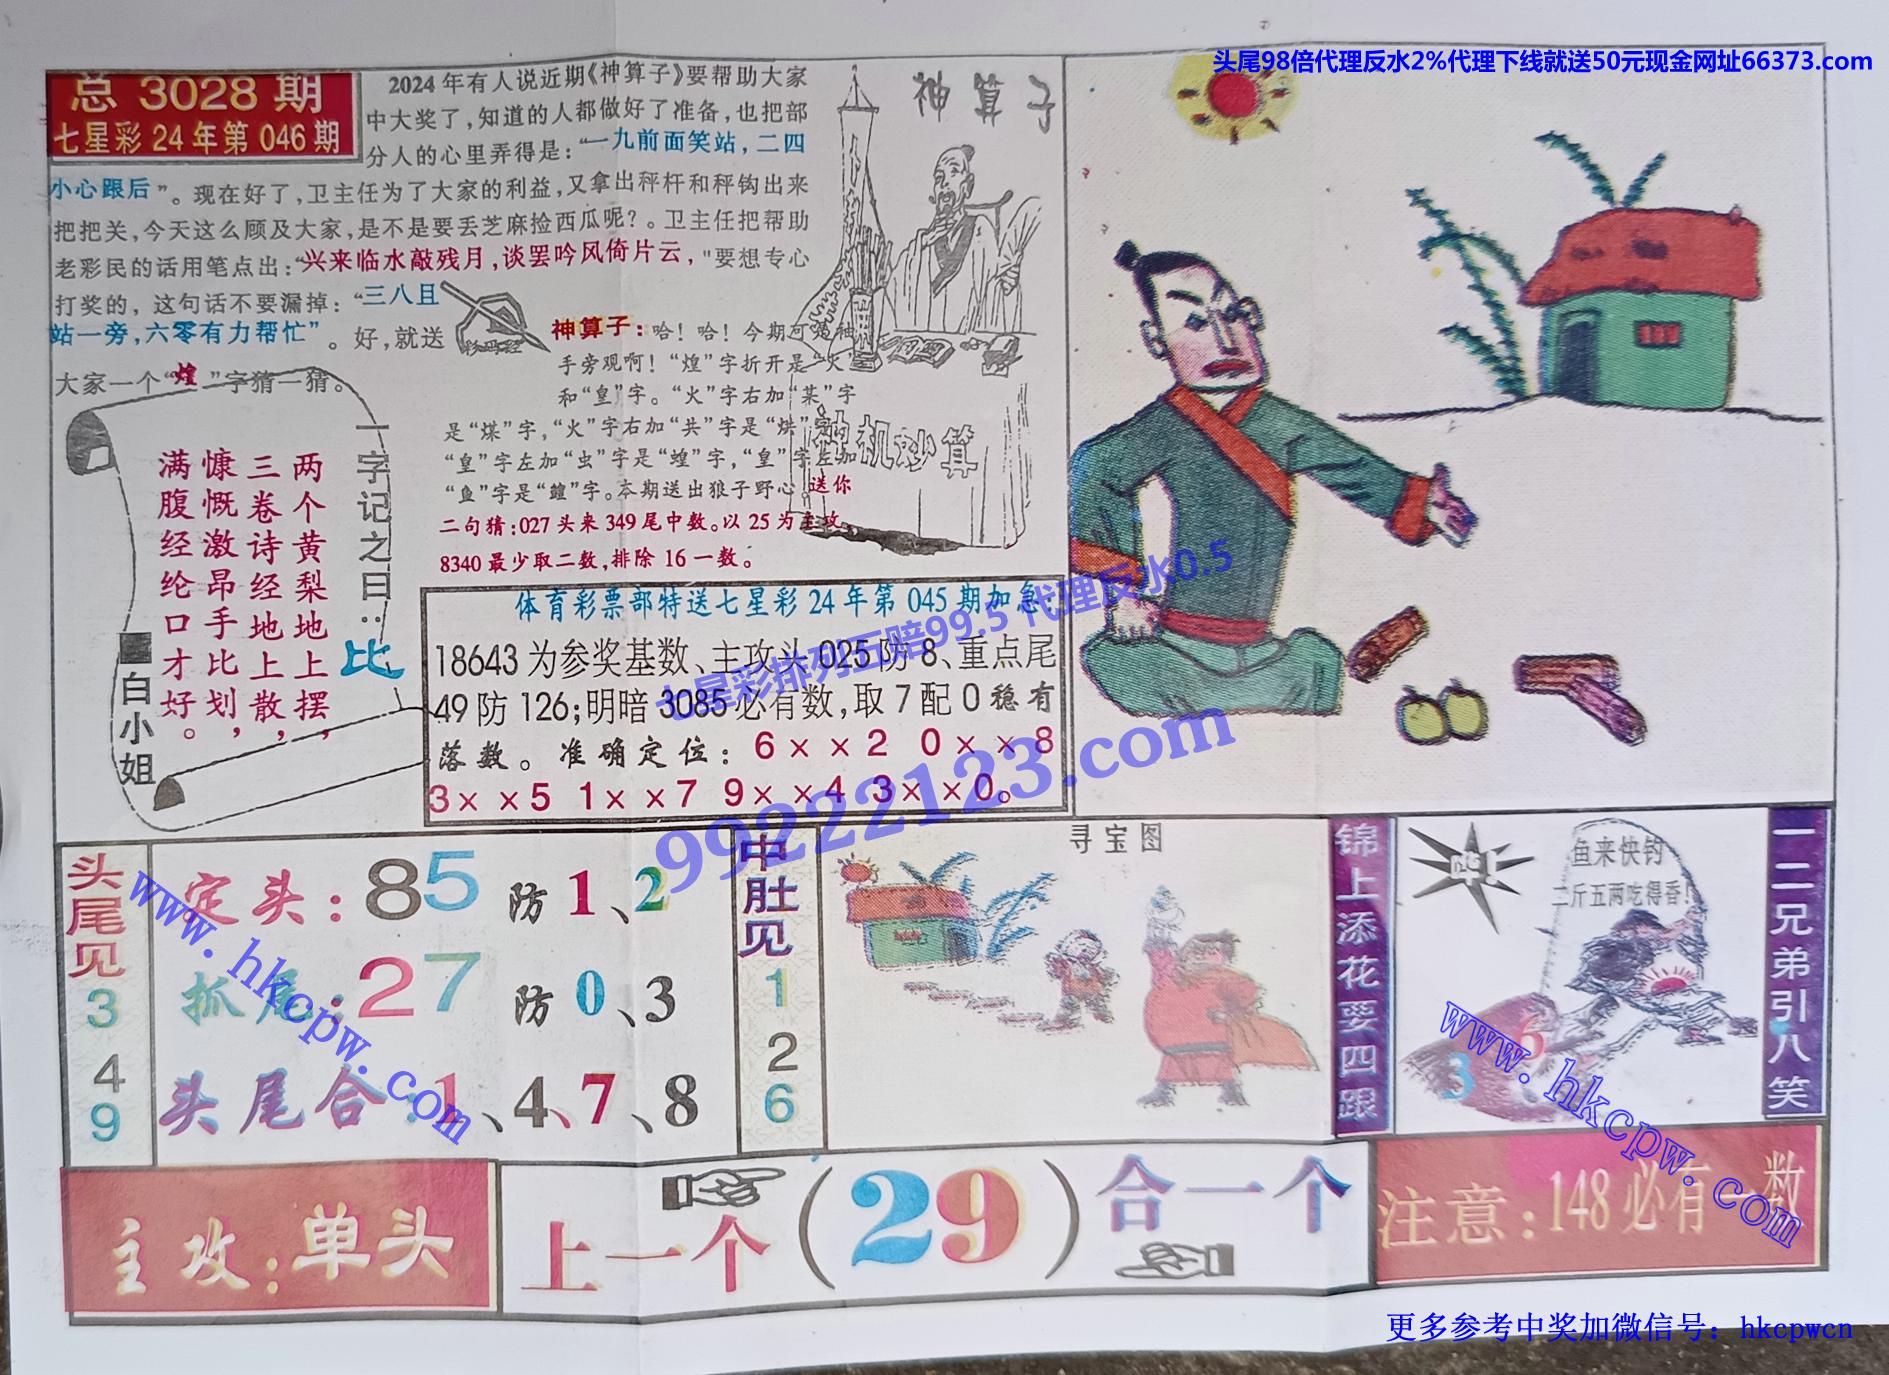 头尾98倍代理反水2%代理下线就送50元现金网址66373.com
总 3028 期
七星彩 24 年第 046 期
2024 年有人说近期《神算子》要帮助大家
中大奖了,知道的人都做好了准备,也把部
分人的心里弄得是:“一九前面笑站,二四
小心跟后”。现在好了,卫主任为了大家的利益,又拿出秤杆和秤钩出来
把把关,今天这么顾及大家,是不是要丢芝麻捡西瓜呢?。卫主任把帮助
老彩民的话用笔点出:“兴来临水敲残月,谈罢吟风倚片云,"要想专心
打奖的,这句话不要漏掉:“三八且
站一旁,六零有力帮忙”。好,就送
大家一个“煌”字猜一猜。
神算子
神算子:哈!哈!今期可是袖
手旁观啊!“煌”字折开是“火”
和“皇”字。“火”字右加“某”字
是“煤”字,“火”字右加“共”字是“烘”字
“皇”字左加“虫”字是“蝗”字,“皇”字左加
“鱼”字是“鳇”字。本期送出狼子野心。送你
二句猜:027 头来 349 尾中数。以 25 为主攻,
8340 最少取二数,排除 16 一数。
神机妙算
一字记之曰:比
两个黄梨地上摆,
三卷诗经地上散,
慷慨激昂手比划,
满腹经纶口才好。
白小姐
体育彩票部特送七星彩 24 年第 045 期加急
18643 为参奖基数、主攻头 025 防 8、重点尾
49 防 126;明暗 3085 必有数,取 7 配 0 稳有
落数。准确定位:6××2 0××8
3××5 1××7 9××4 3××0。
七星彩排列五赔99.5 代理反水0.5
99222123.com
头尾见
3
4
9
定头:85 防 1、2
抓尾:27 防 0、3
头尾合:1、4、7、8
www.hkcpw.com
中肚见
1
2
6
寻宝图
锦上添花要四跟
鱼来快钓
二斤五两吃得香!
3
6
www.hkcpw.com
一二兄弟引八笑
主攻:单头
上一个(29)合一个
注意:148 必有一数
更多参考中奖加微信号:hkcpwcn